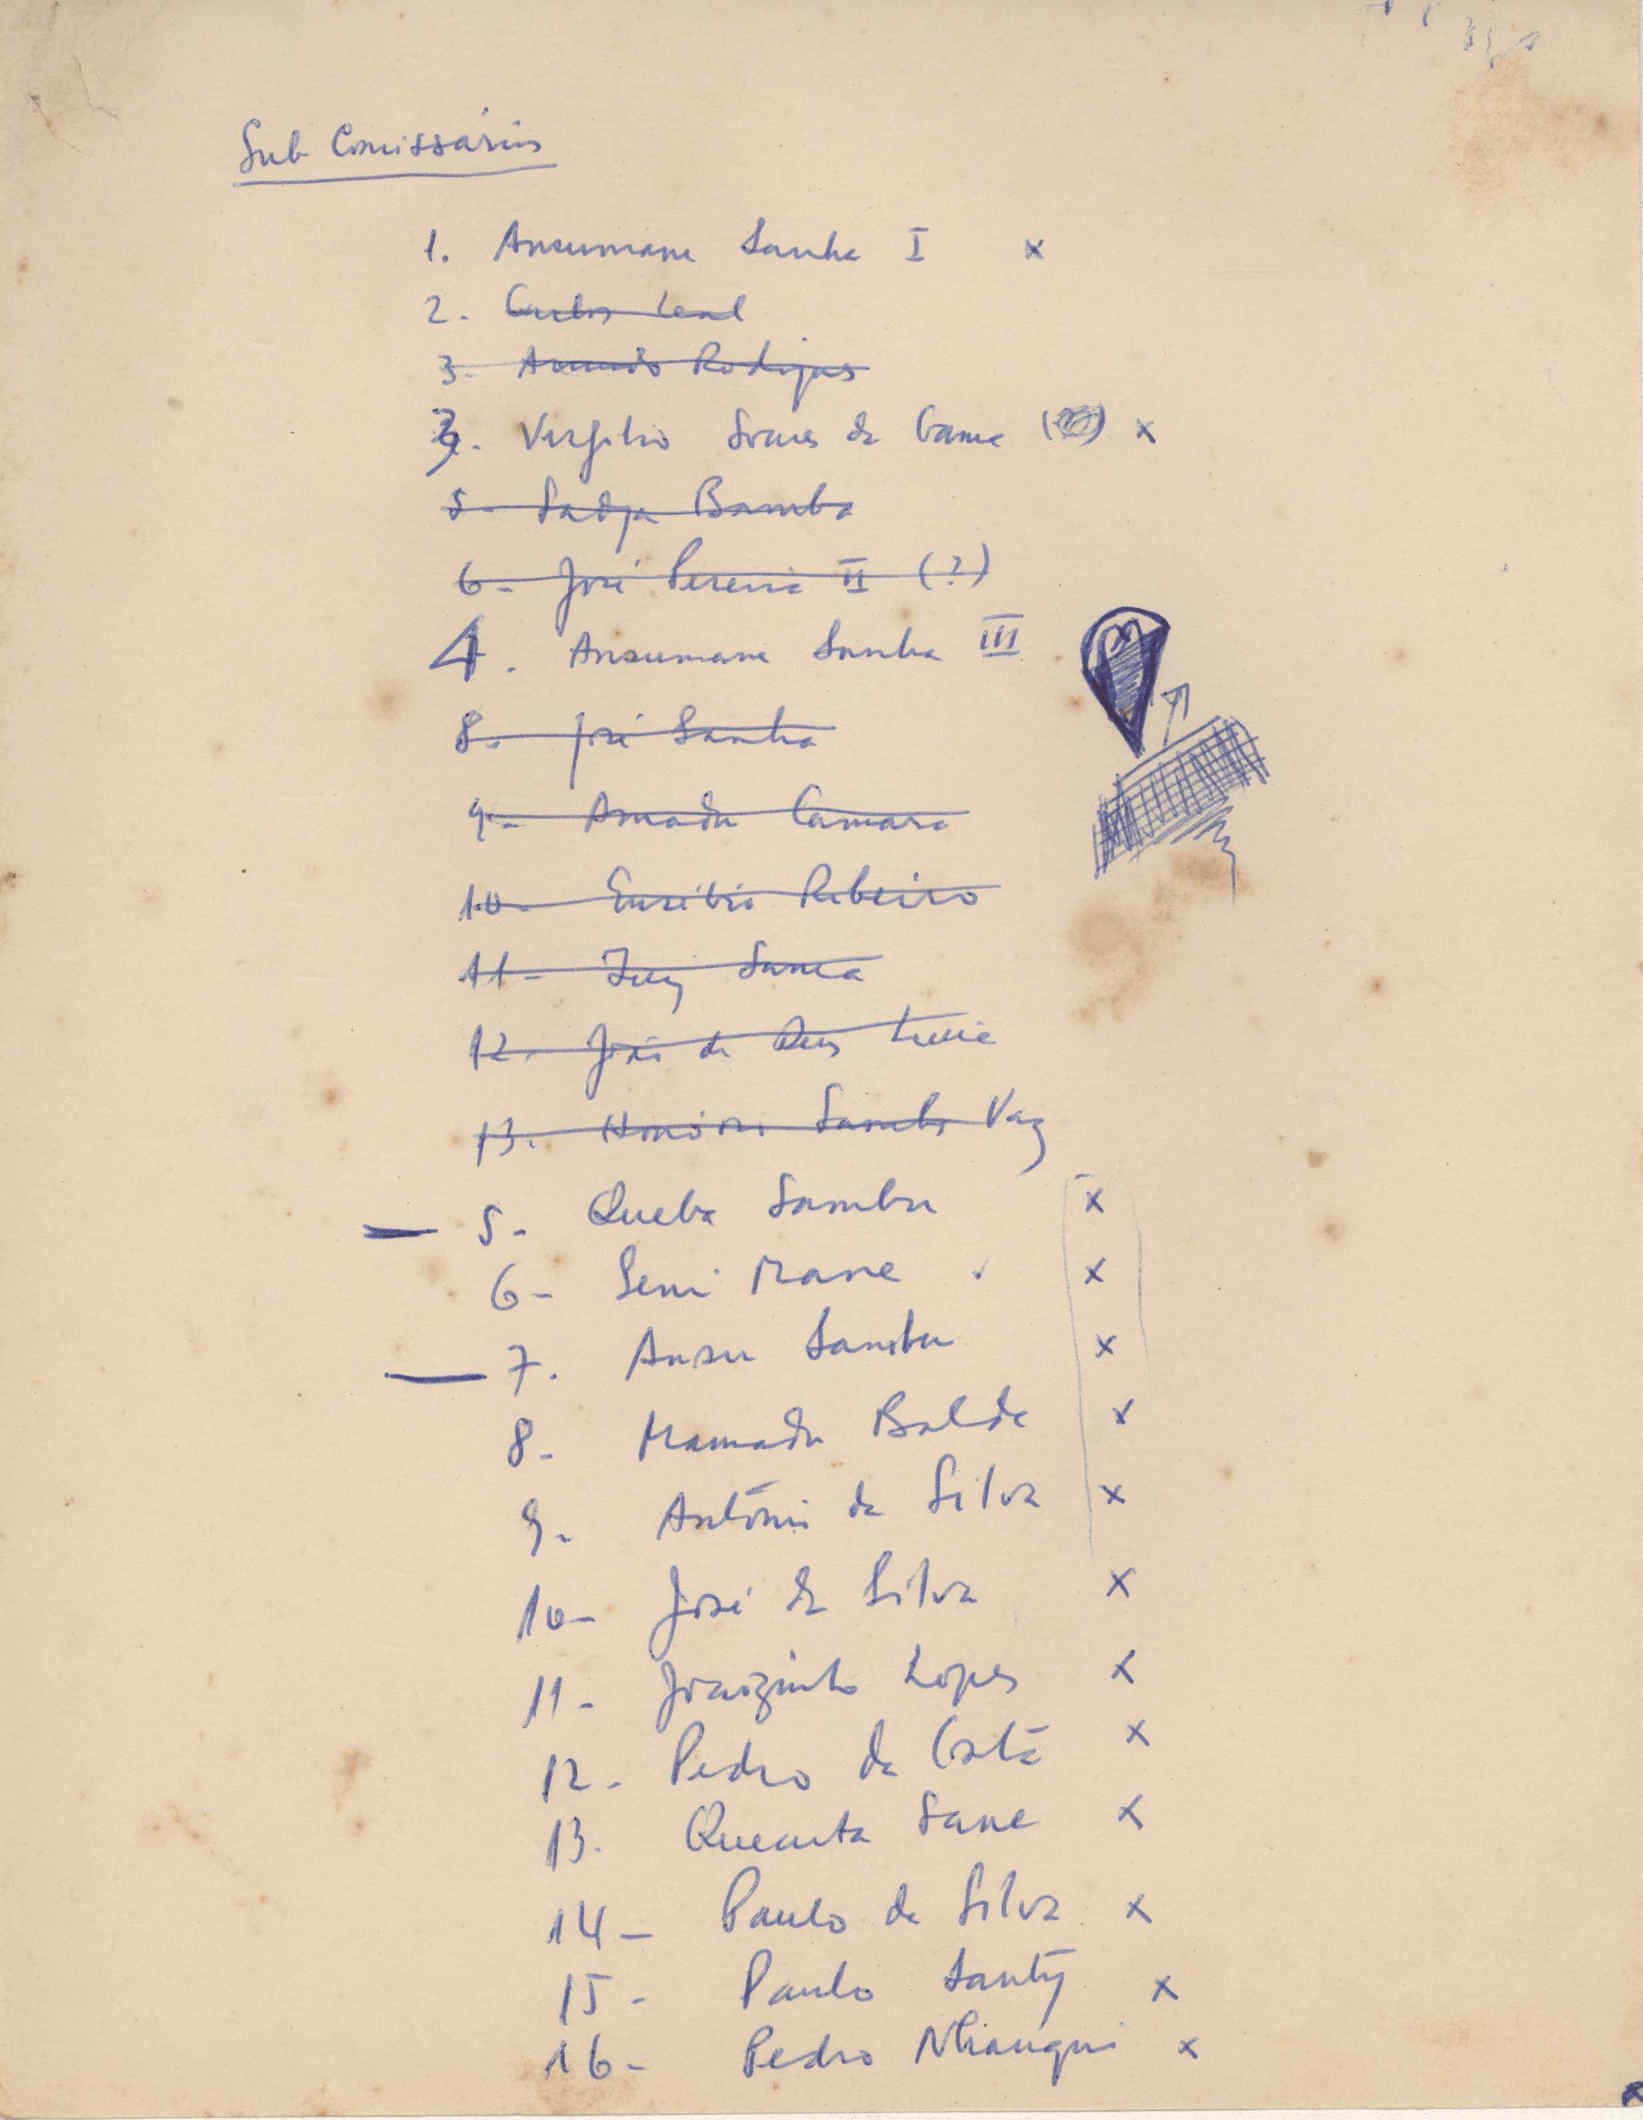 Sub Comissários
1. Ansumane Sanha I x
2. Carlos Leal
3. Armando Rodrigues
3. Virgilio Soares da Gama x
5- Sadja Bamba
6- José Pereira II (?)
4. Ansumane Sanha III
8- José Sanha
9- Amadu Camara
10- Eusébio Ribeiro
11- Sanca
12- João de Deus
13. Honório Sanches Vaz
5- Queba Sambu x
6- Seni Mane x
7. Ansu Sambu x
8- Mamadu Balde x
9- António da Silva x
10- José da Silva x
11- Joaozinho Lopes x
12- Pedro da Costa x
13. Quecuta Sane x
14- Paulo da Silva x
15- Paulo Santy x
16- Pedro x